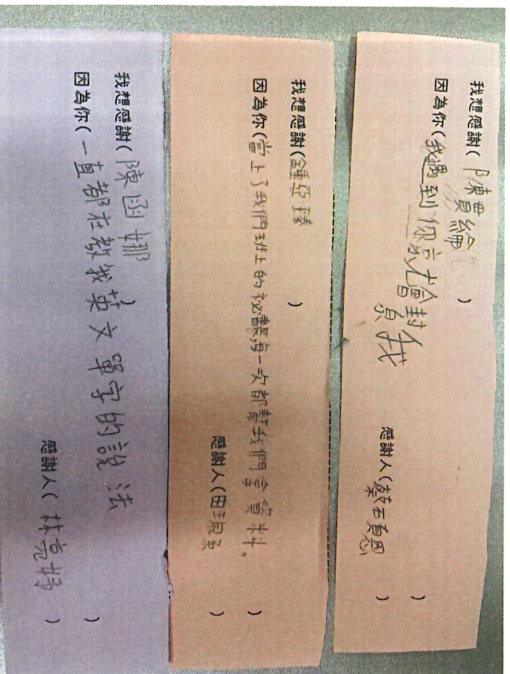 我想感謝(陳貫綸)
因為你(我遇到你就會對我
感謝人(蔡 恩)
我想感謝(鍾亞臻)
因為你(當上了我們班上的祕 每一次都幫我們拿資料。)
感謝人(田 )
我想感謝(陳函娜)
因為你(一直都在教我英文單字的說法)
感謝人(林亮妤)